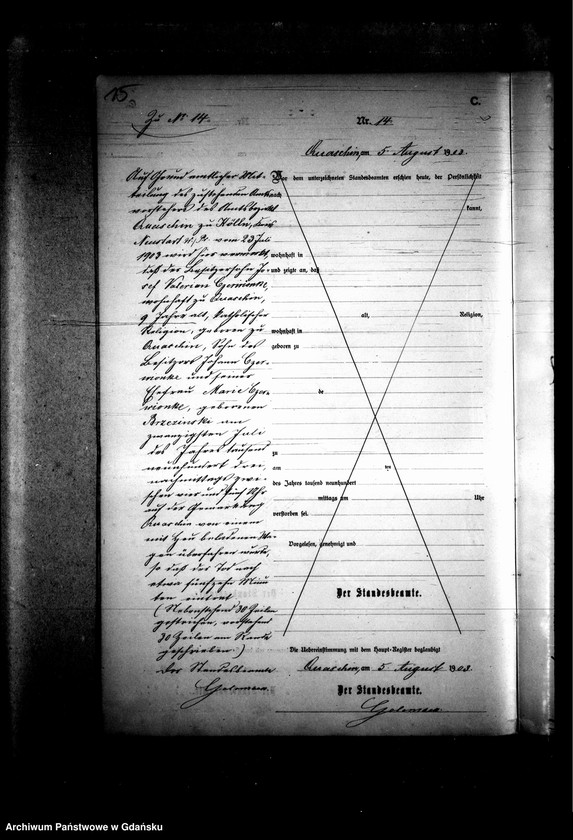 15.
C.
Zu No 14.
Nr. 14.
Quaschin, am 5. August 1903.
Auf Grund amtlicher Mit-
teilung des zuständigen Amts-
vorstehers des Amtsbezirks
Quaschin zu Kölln, Kreis
Neustadt W/Pr. vom 23 Juli
1903 wird hier vermerkt,
daß der Besitzersohn Jo-
sef Valerian
wohnhaft zu Quaschin,
9 Jahre alt, katholischer
Religion, geboren zu
Quaschin, Sohn des
Besitzers Johann
und seiner
Ehefrau Marie
geborenen
Brzezinski am
zwanzigsten Juli
des Jahres tausend
neunhundert drei
nachmittags zwi-
schen vier und fünf Uhr
auf der Gemarkung
Quaschin von einem
mit Heu beladenen Wa-
gen überfahren wurde,
so daß der Tod nach
etwa fünfzehn Minu-
ten eintrat
(Nebenstehend 30 Zeilen
gestrichen, vorstehend
30 Zeilen am Rande
geschrieben.)
Der Standesbeamte
Vor dem unterzeichneten Standesbeamten erschien heute, der Persönlichkeit
nach
kannt,
wohnhaft in
und zeigte an, daß
alt, Religion,
wohnhaft in
geboren zu
be
zu
am ten
des Jahres tausend neunhundert
mittags um Uhr
verstorben sei.
Vorgelesen, genehmigt und
Der Standesbeamte.
Die Uebereinstimmung mit dem Haupt-Register beglaubigt
Quaschin, am 5. August 1903.
Der Standesbeamte.
Archiwum Państwowe w Gdańsku